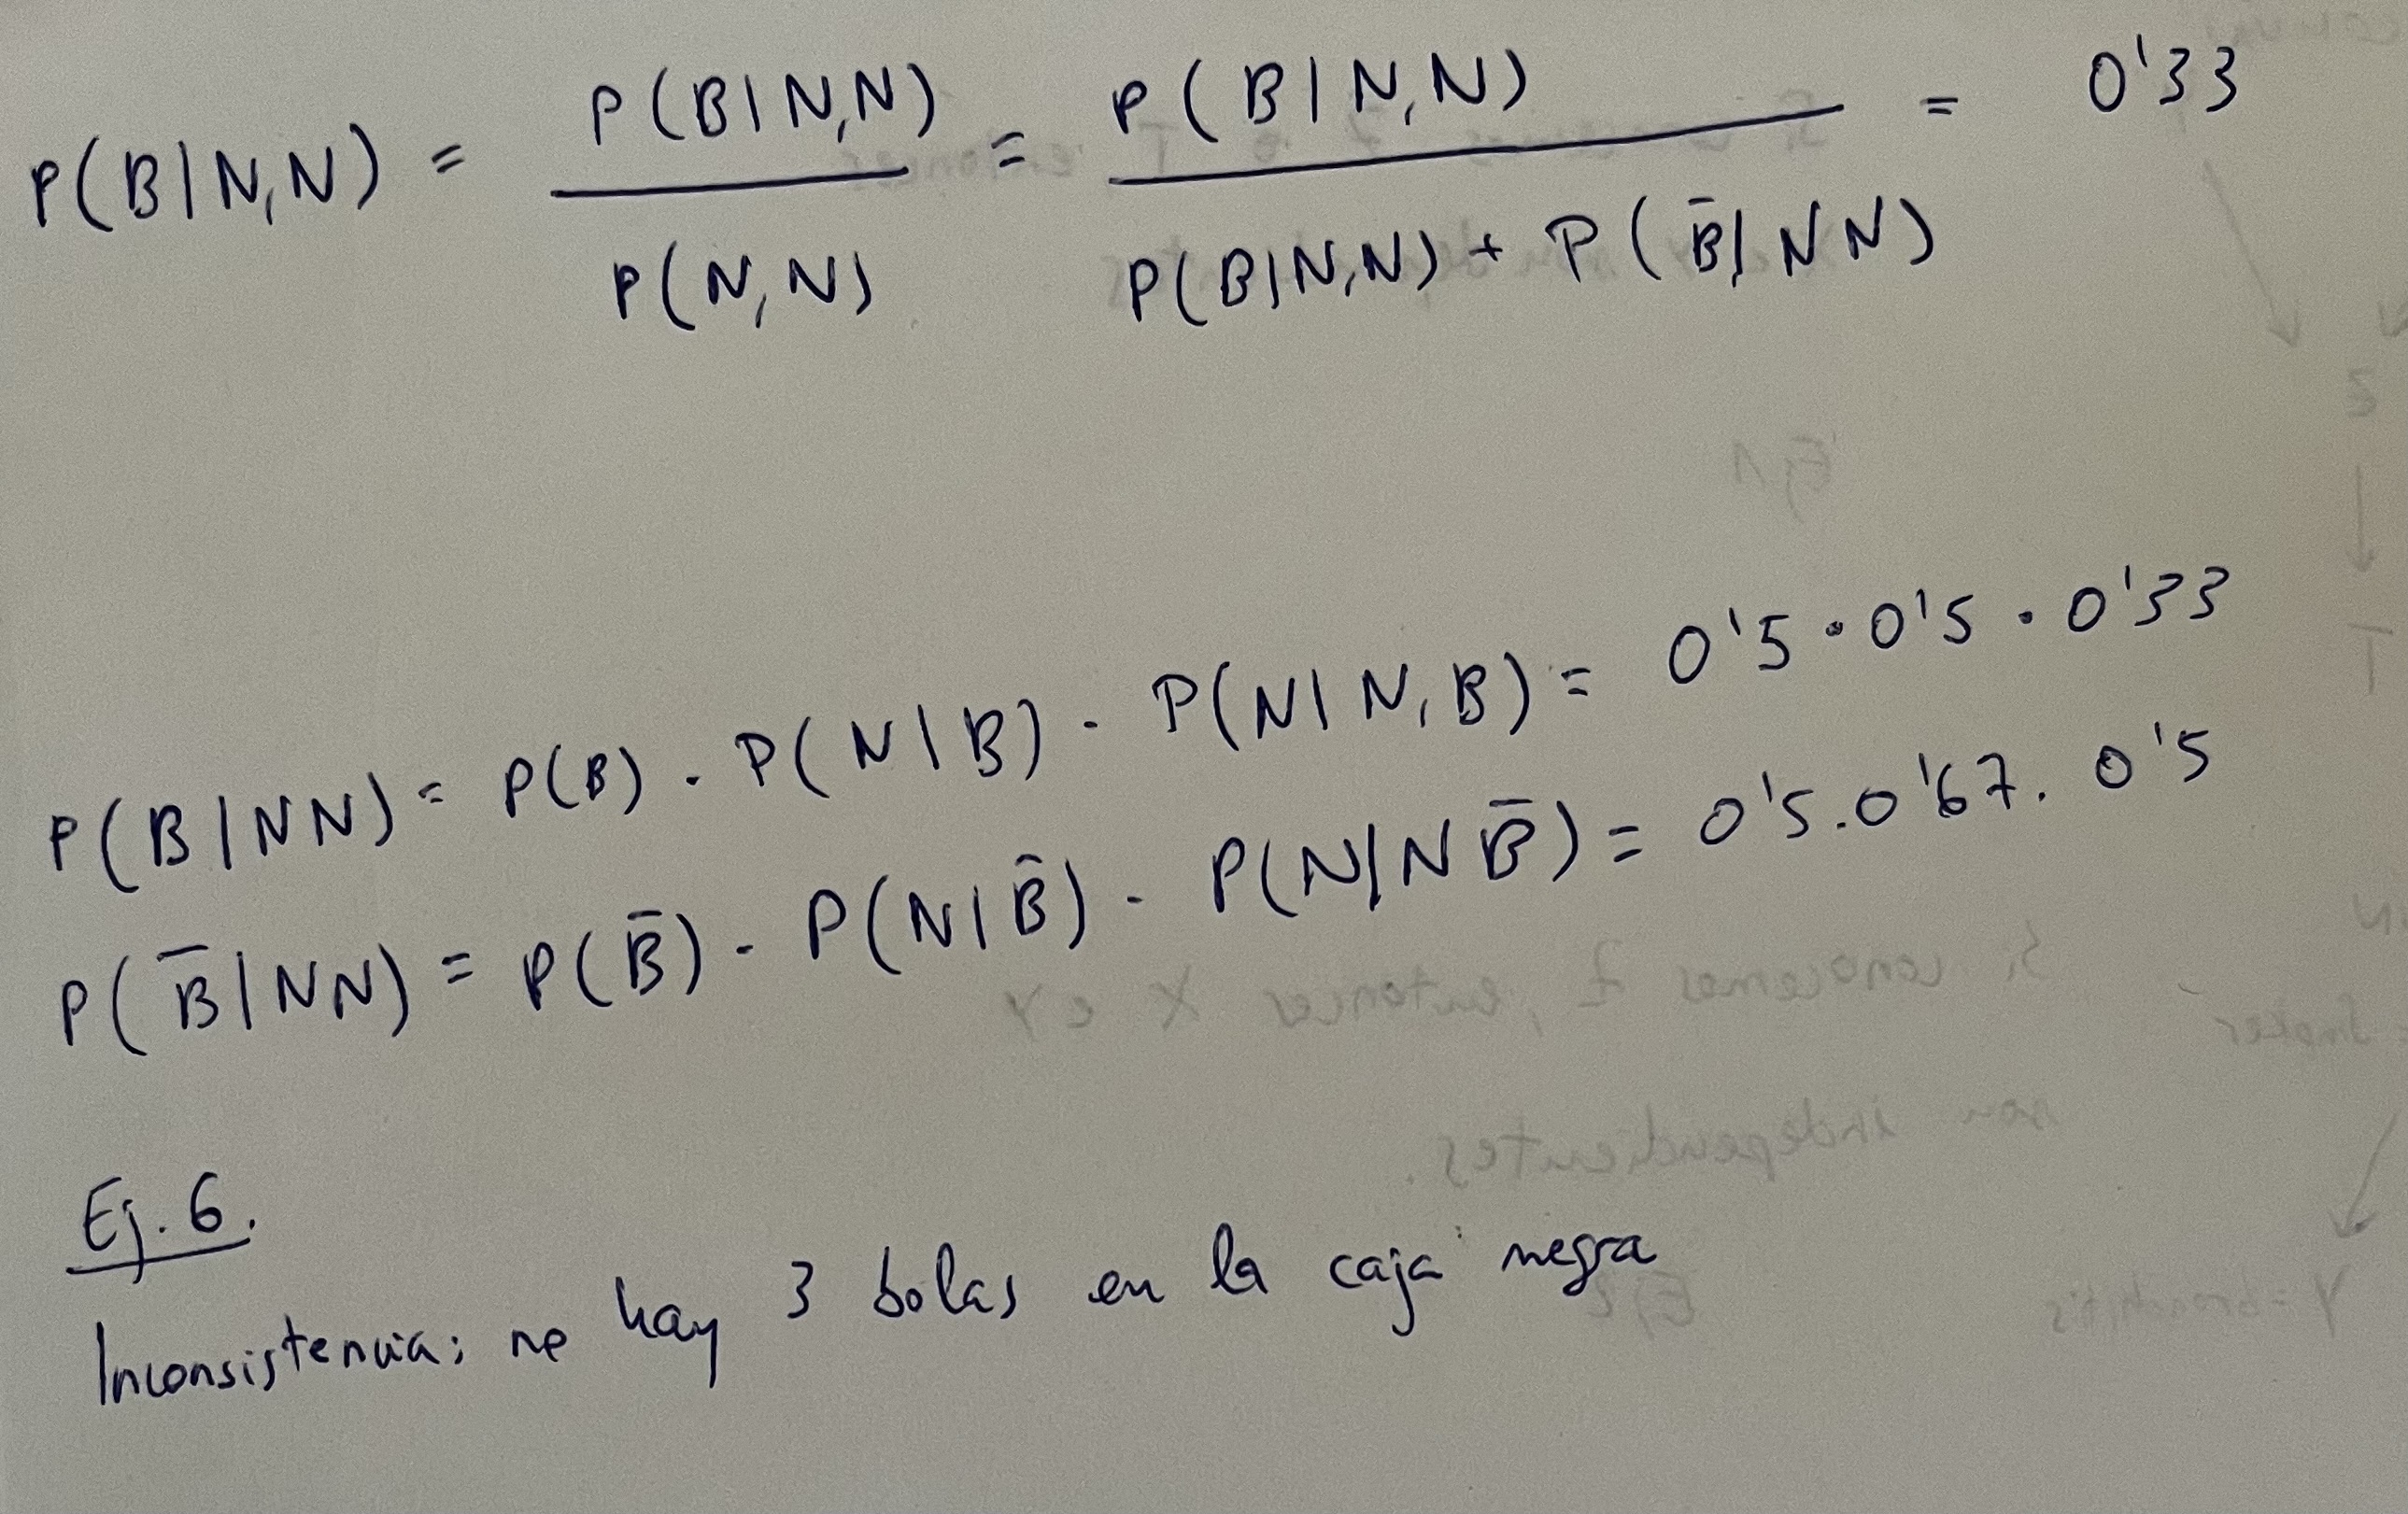 P(B|N,N) = P(B|N,N) / P(N,N) = P(B|N,N) / P(B|N,N) + P(B̄|NN) = 0'33
P(B|NN) = P(B) · P(N|B) · P(N|N,B) = 0'5 · 0'5 · 0'33
P(B̄|NN) = P(B̄) · P(N|B̄) · P(N|NB̄) = 0'5 · 0'67 · 0'5
Ej. 6.
Inconsistencia: no hay 3 bolas en la caja negra